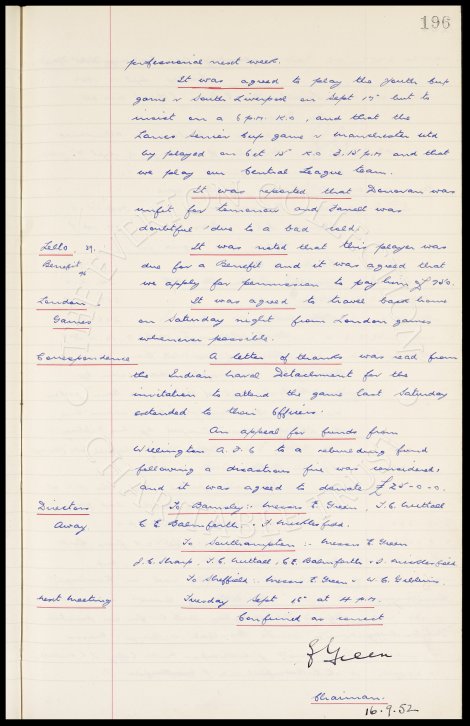 196
professional next week.
It was agreed to play the Youth Cup
game v South Liverpool on Sept 17th but to
insist on a 6 p.m. K.O, and that the
Lancs Senior Cup game v Manchester Utd
by played on Oct 15th K.O 3.15 p.m and that
we play our Central League team.
It was reported that Donovan was
unfit for tomorrow and Farrell was
doubtful due to a bad cold.
Lello
It was noted that this player was
Benefit
due for a Benefit and it was agreed that
we apply for permission to pay him £750
London
It was agreed to travel back home
Games
on Saturday night from London games
whenever possible.
Correspondence
A letter of thanks was read from
the Indian Naval Detachment for the
invitation to attend the game last Saturday
extended to their Officers.
An appeal for funds from
Wellington A.F.C to a rebuilding fund
following a disastrous fire was considered,
and it was agreed to donate £25-0-0.
Directors
To Barnsley:- Messrs E. Green, T.C. Nuttall
Away
C E Balmforth, F. Micklesfield.
To Southampton:- Messrs E. Green
J.C. Sharp, T.C. Nuttall, C.E Balmforth & F. Micklesfield
To Sheffield:- Messrs E. Green & W.C. Gibbins.
Next Meeting
Tuesday Sept 16th at 4 P.M.
Confirmed as correct
E Green
Chairman.
16.9.52